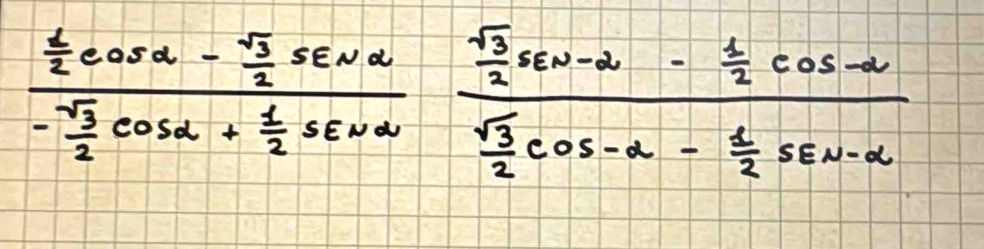 \frac{\frac{1}{2} cos α - \frac{\sqrt{3}}{2} SEN α}{-\frac{\sqrt{3}}{2} cos α + \frac{1}{2} SEN α} \frac{\frac{\sqrt{3}}{2} SEN-α - \frac{1}{2} cos-α}{\frac{\sqrt{3}}{2} cos-α - \frac{1}{2} SEN-α}